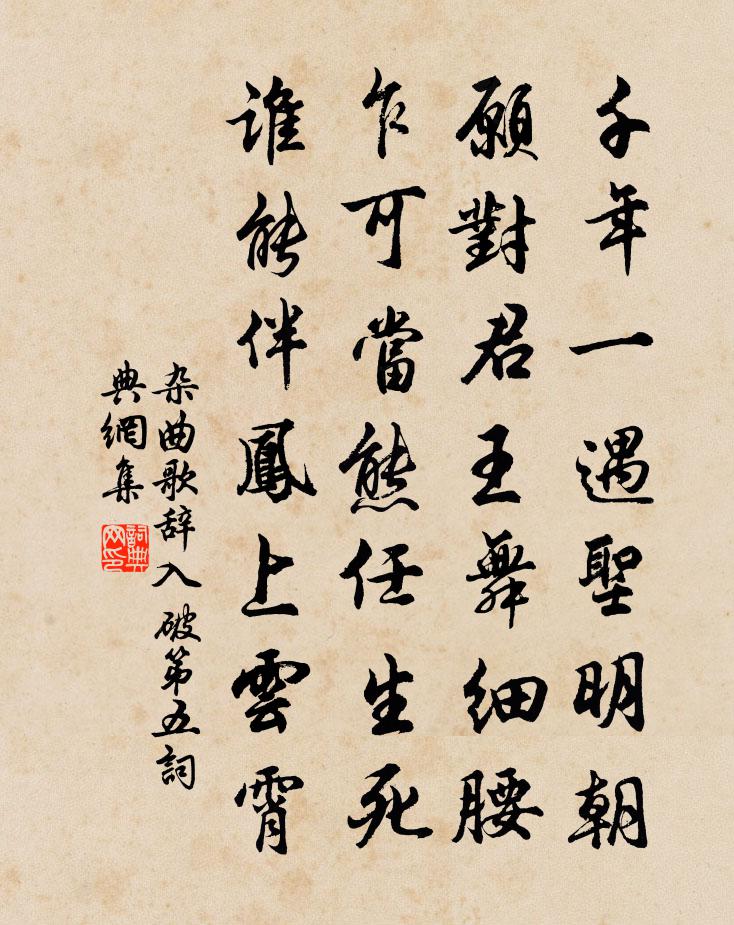 千年一遇聖明朝
願對君王舞細腰
乍可當熊任生死
誰能伴鳳上雲霄
杂曲歌辞入破第五詞
典網集
詞典网印